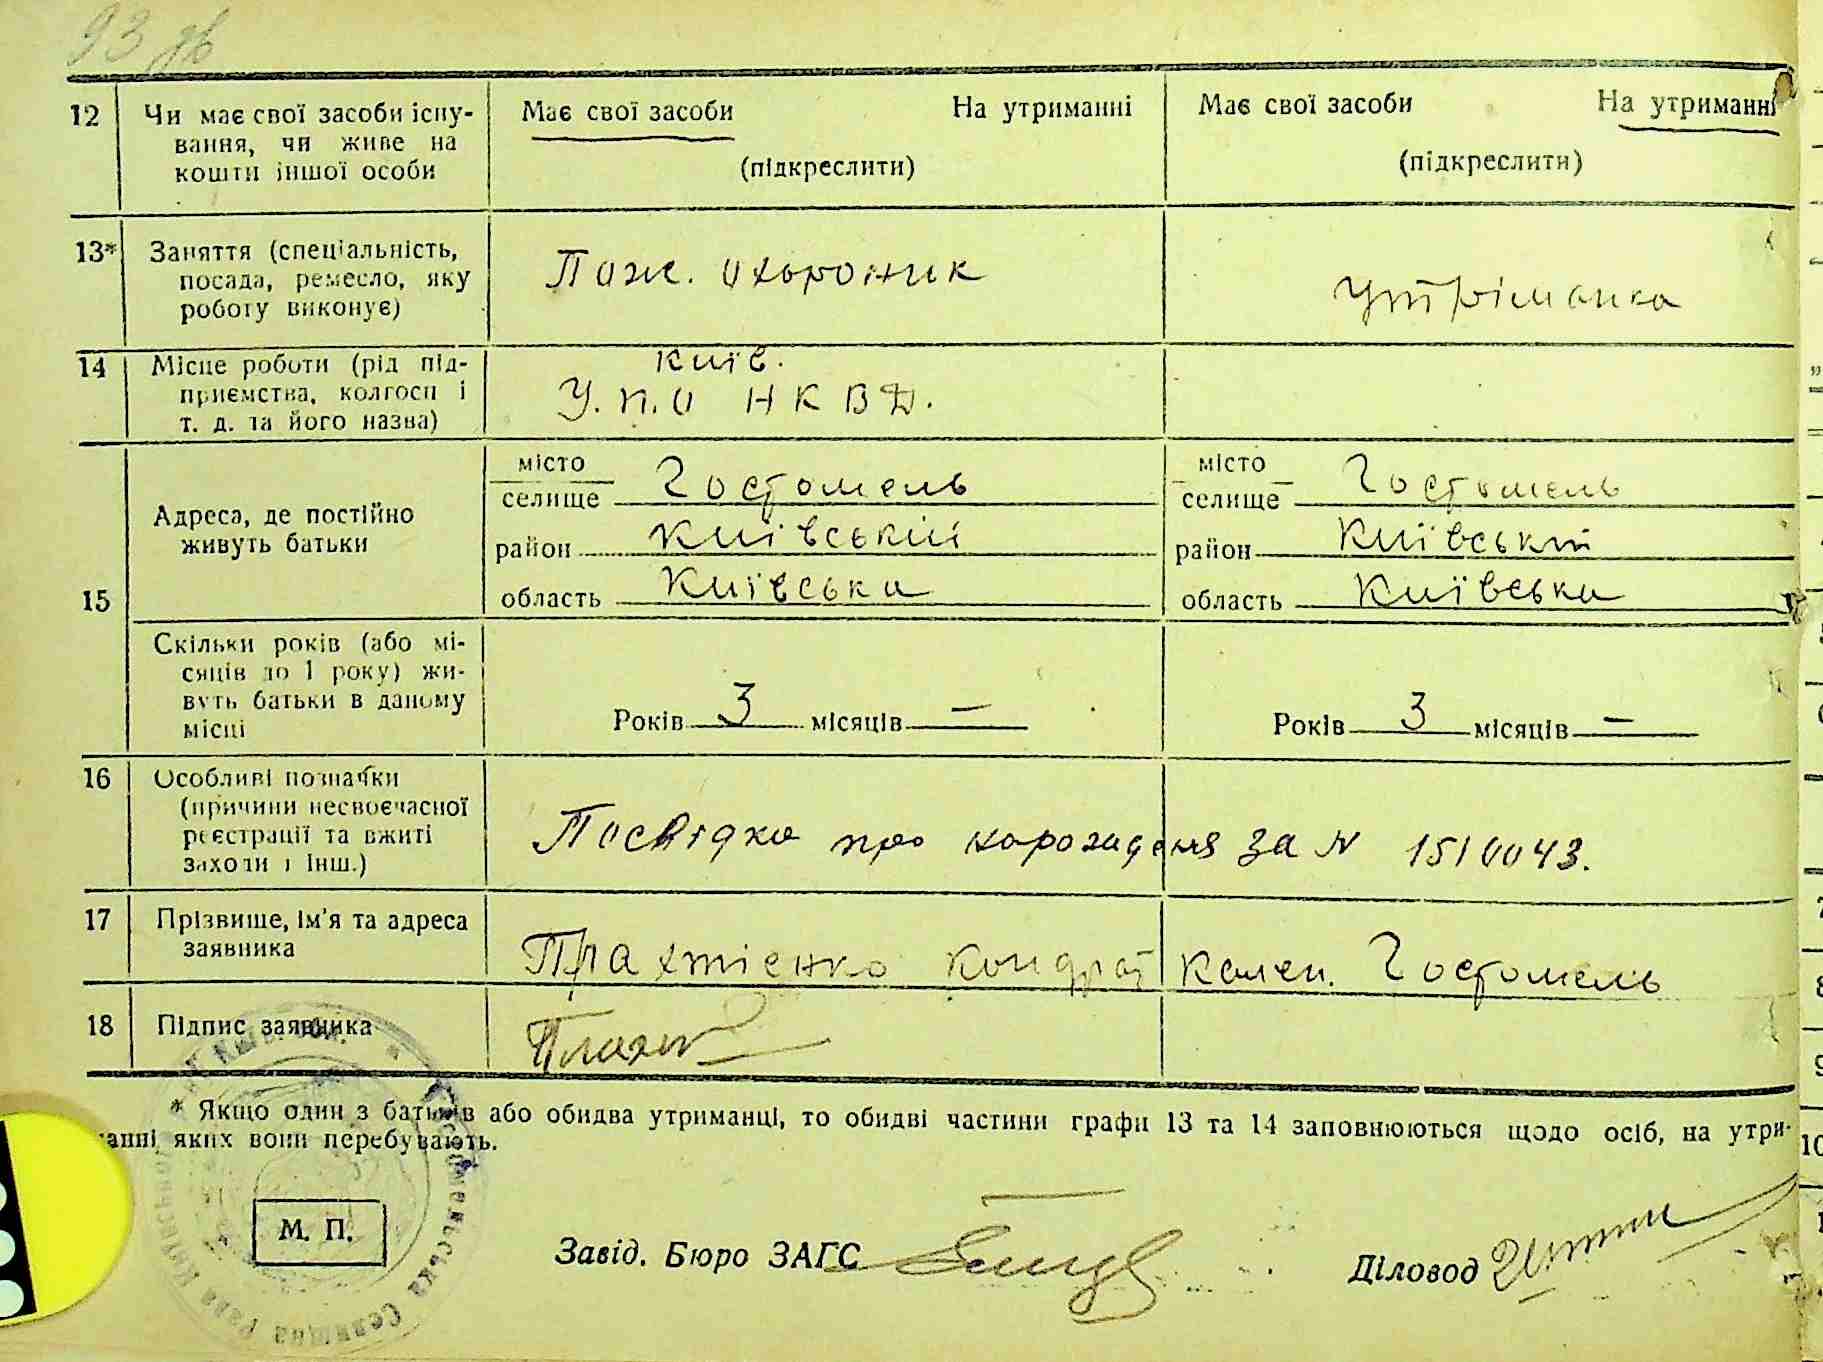 93 зв
12 Чи має свої засоби існу- Має свої засоби На утриманні Має свої засоби На утриманні
вання, чи живе на
кошти іншої особи (підкреслити) (підкреслити)
13* Заняття (спеціальність,
посада, ремесло, яку
роботу виконує) Пож. охороник Утріманка
14 Місце роботи (рід під-
приємства, колгосп і
т. д. та його назва) Київ.
У.П.О НКВД.
15 Адреса, де постійно
живуть батьки
місто
селище Гостомель
район Київський
область Київська
місто
селище Гостомель
район Київський
область Київська
Скільки років (або мі-
сяців до 1 року) жи-
вуть батьки в даному
місці Років 3 місяців — Років 3 місяців —
16 Особливі позначки
(причини несвоєчасної
реєстрації та вжиті
заходи і інш.) Посвідка про народження за N 1510043.
17 Прізвище, ім'я та адреса
заявника Кондрат Гостомель
18 Підпис заявника
* Якщо один з батьків або обидва утриманці, то обидві частини графи 13 та 14 заповнюються щодо осіб, на утри-
манні яких вони перебувають.
М. П.
Завід. Бюро ЗАГС
Діловод
Гостомельська Селищна Рада